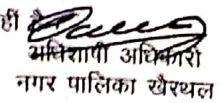 हीं है
अधिशाषी अधिकारी
नगर पालिका खैरथल